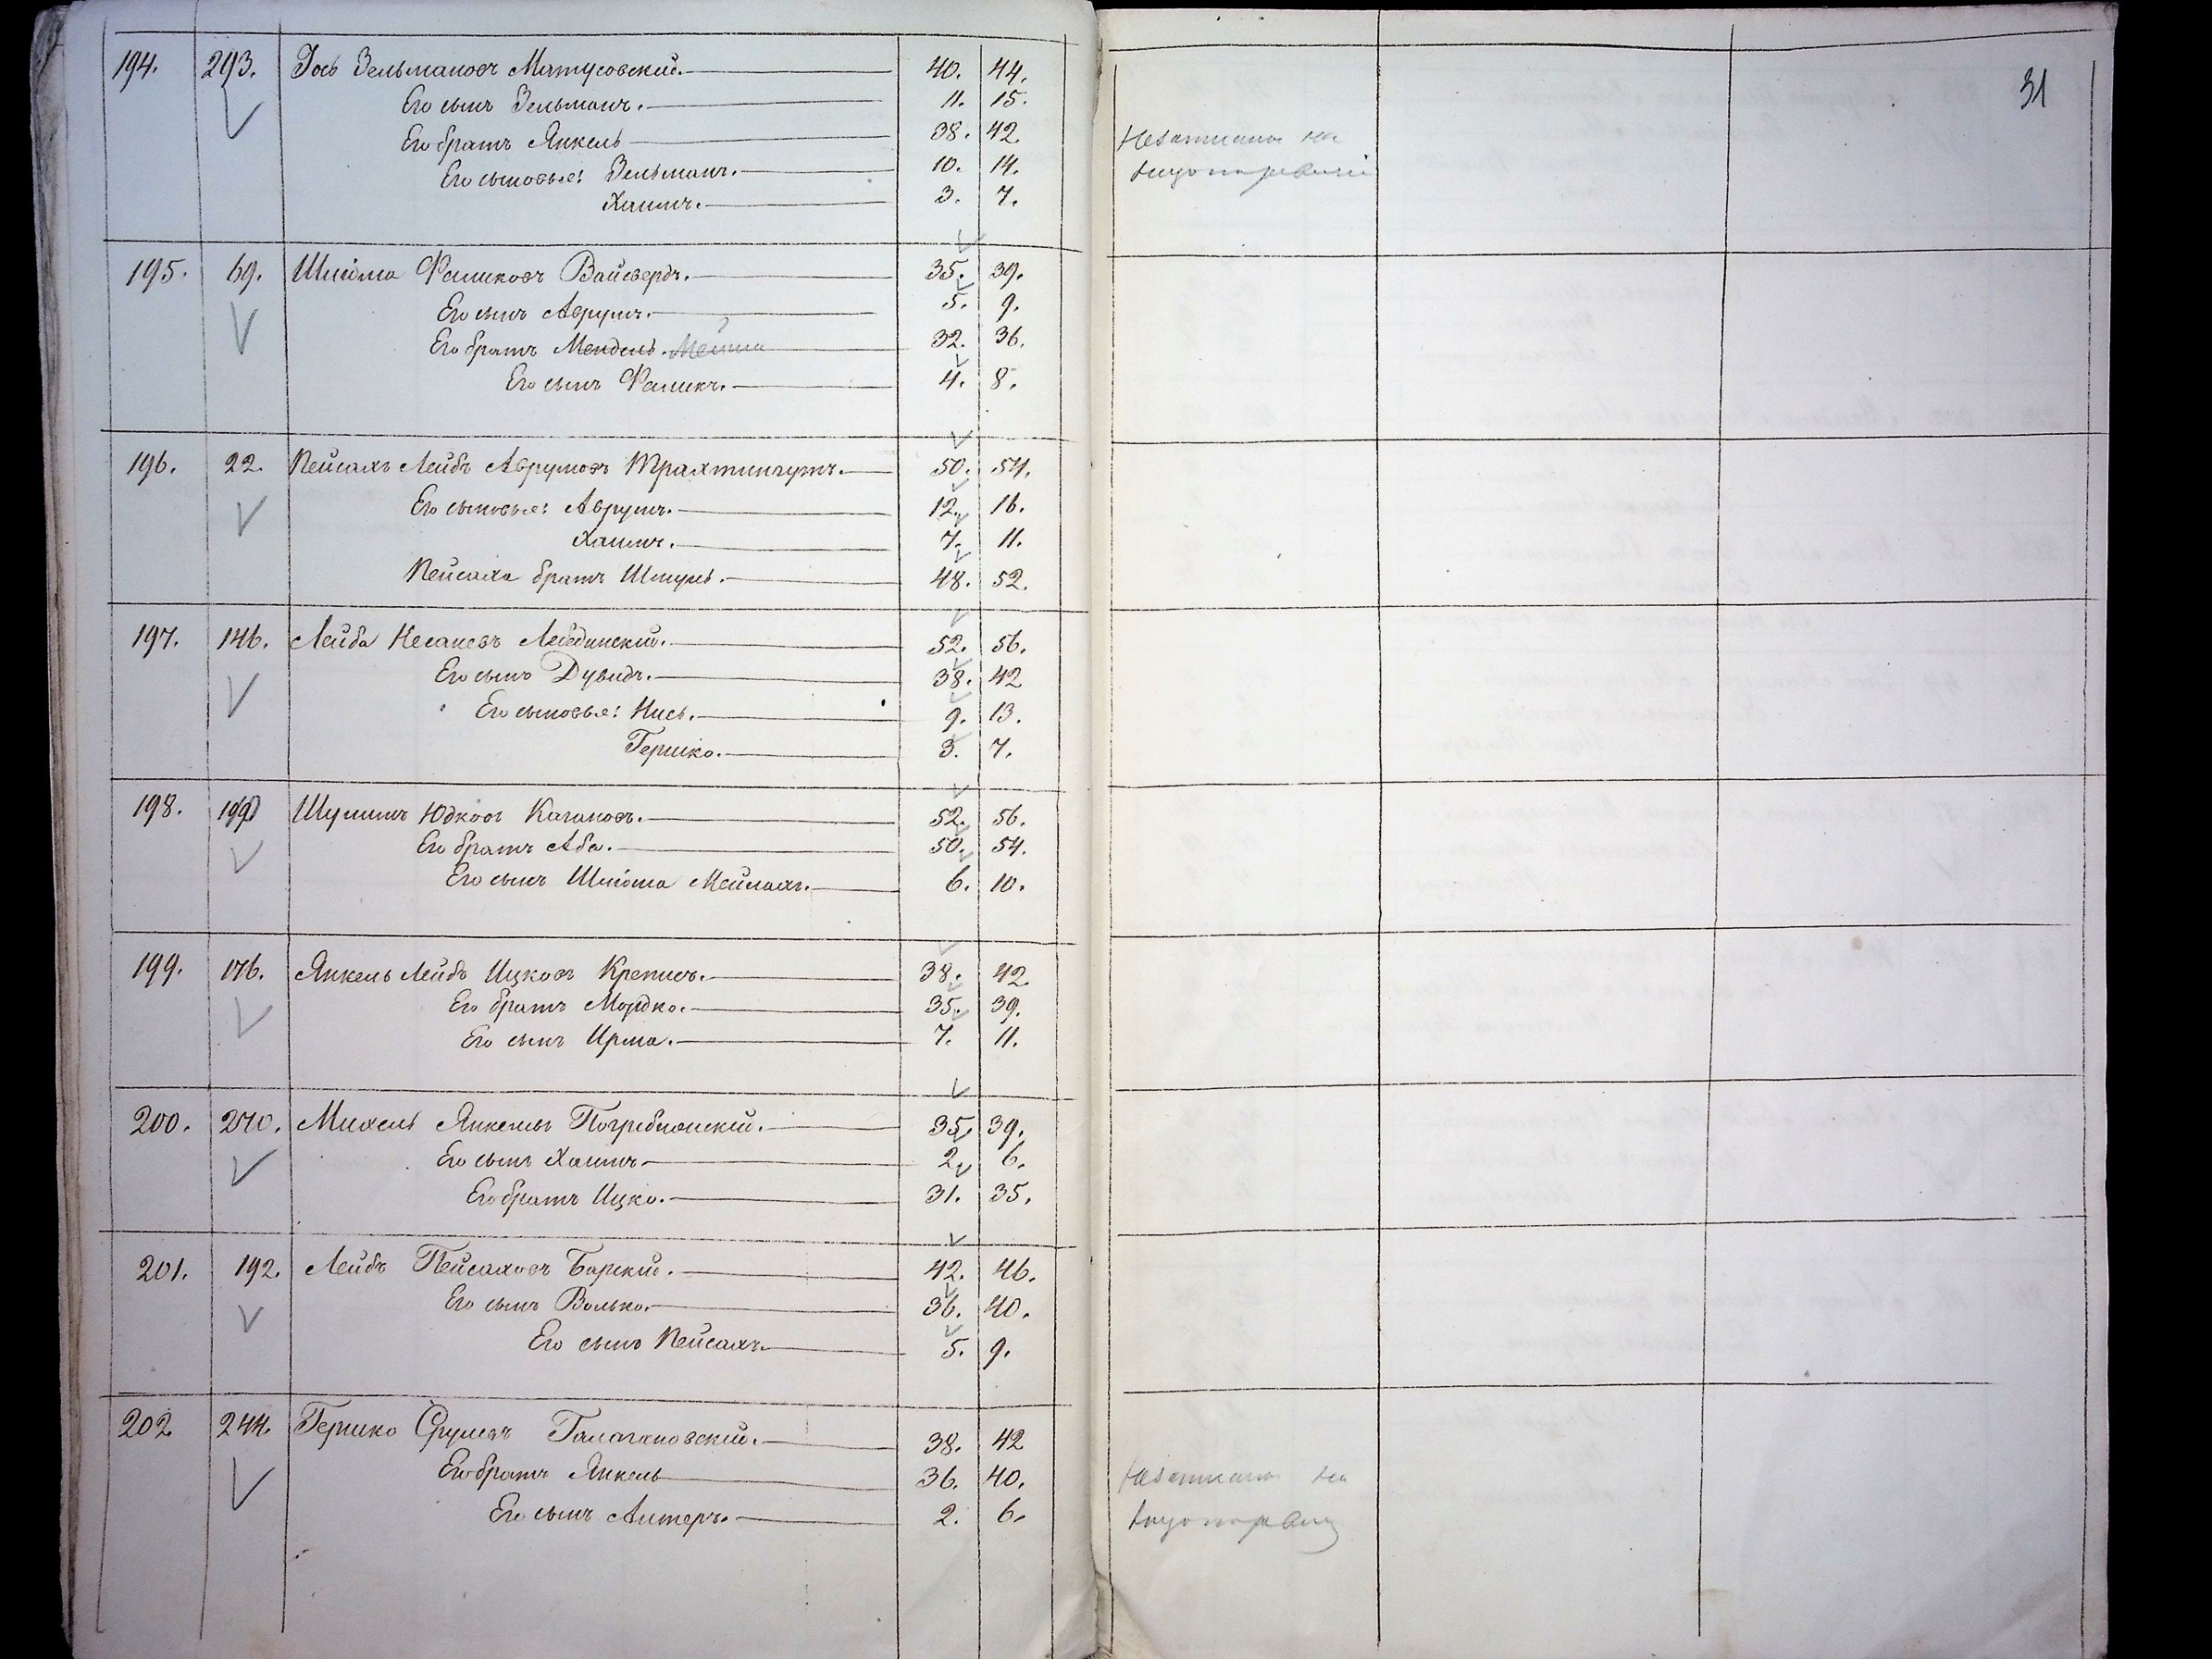 31
194. 293. Іось Зельмановъ Матусовскій. 40. 44.
Его сынъ Зельманъ. 11. 15.
Его братъ Янкель 38. 42.
Его сыновья: Зельманъ. 10. 14.
Хаимъ. 3. 7.
195. 69. Шліома Фаликовъ Вайсбердъ. 35. 39.
Его сынъ Аврумъ. 5. 9.
Его братъ Мендель. 32. 36.
Его сынъ Фаликъ. 4. 8.
196. 22. Пейсахъ Лейбъ Аврумовъ Трахтингутъ. 50. 54.
Его сыновья: Аврумъ. 12. 16.
Хаимъ. 7. 11.
Пейсаха братъ Шмуль. 48. 52.
197. 146. Лейба Несановъ Лебединскій. 52. 56.
Его сынъ Дувидъ. 38. 42
Его сыновья: Нись. 9. 13.
Гершко. 3. 7.
198. Шулимъ Юдковъ Кагановъ. 52. 56.
Его братъ Аба. 50. 54.
Его сынъ Шліома Мейлахъ. 6. 10.
199. 176. Янкель Лейбъ Ицковъ Креписъ. 38. 42.
Его братъ Мордко. 35. 39.
Его сынъ Ирма. 7. 11.
200. 270. Михель Янкелевъ Погребинскій. 35. 39.
Его сынъ Хаимъ 2. 6.
Его братъ Ицко. 31. 35.
201. 192. Лейбъ Пейсаховъ Барскій. 42. 46.
Его сынъ Волько. 36. 40.
Его сынъ Пейсахъ. 5. 9.
202. 244. Гершко Срулевъ Талагановскій. 38. 42
Его братъ Янкель 36. 40.
Его сынъ Алтеръ. 2. 6.